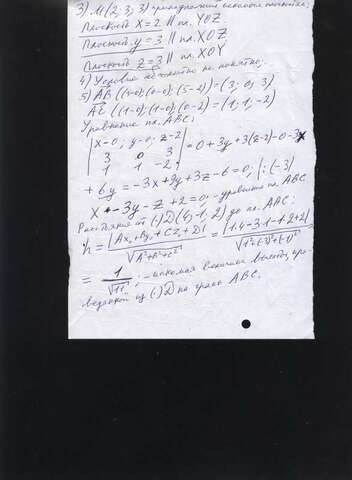 3) M(2; 3; 3) принадлежит
Плоскость X = 2 || пл. YOZ.
Плоскость y = 3 || пл. XOZ.
Плоскость z = 3 || пл. XOY
4) Условие не понятно.
5) AB ((3-0);(0-0);(5-2))=(3; 0; 3)
AC ((1-0);(1-0);(0-2))=(1; 1; -2)
Уравнение пл. ABC:
|x-0; y-0; z-2|
|3 0 3| = 0+3y+3(z-2)-0-3x
|1 1 -2|
+ 6y = -3x+9y+3z-6=0; |:(-3)
x - 3y - z +2 = 0 - уравнение пл. ABC
Расстояние от (·) D(4; 1; 2) до пл. ABC:
h = |Ax₁+By₁+Cz₁+D| / √A²+B²+C² = |1·4-3·1-1·2+2| / √1²+(-3)²+(-1)²
= 1/√11; - искомая величина высоты, про-
веденной из (·) D на грань ABC.